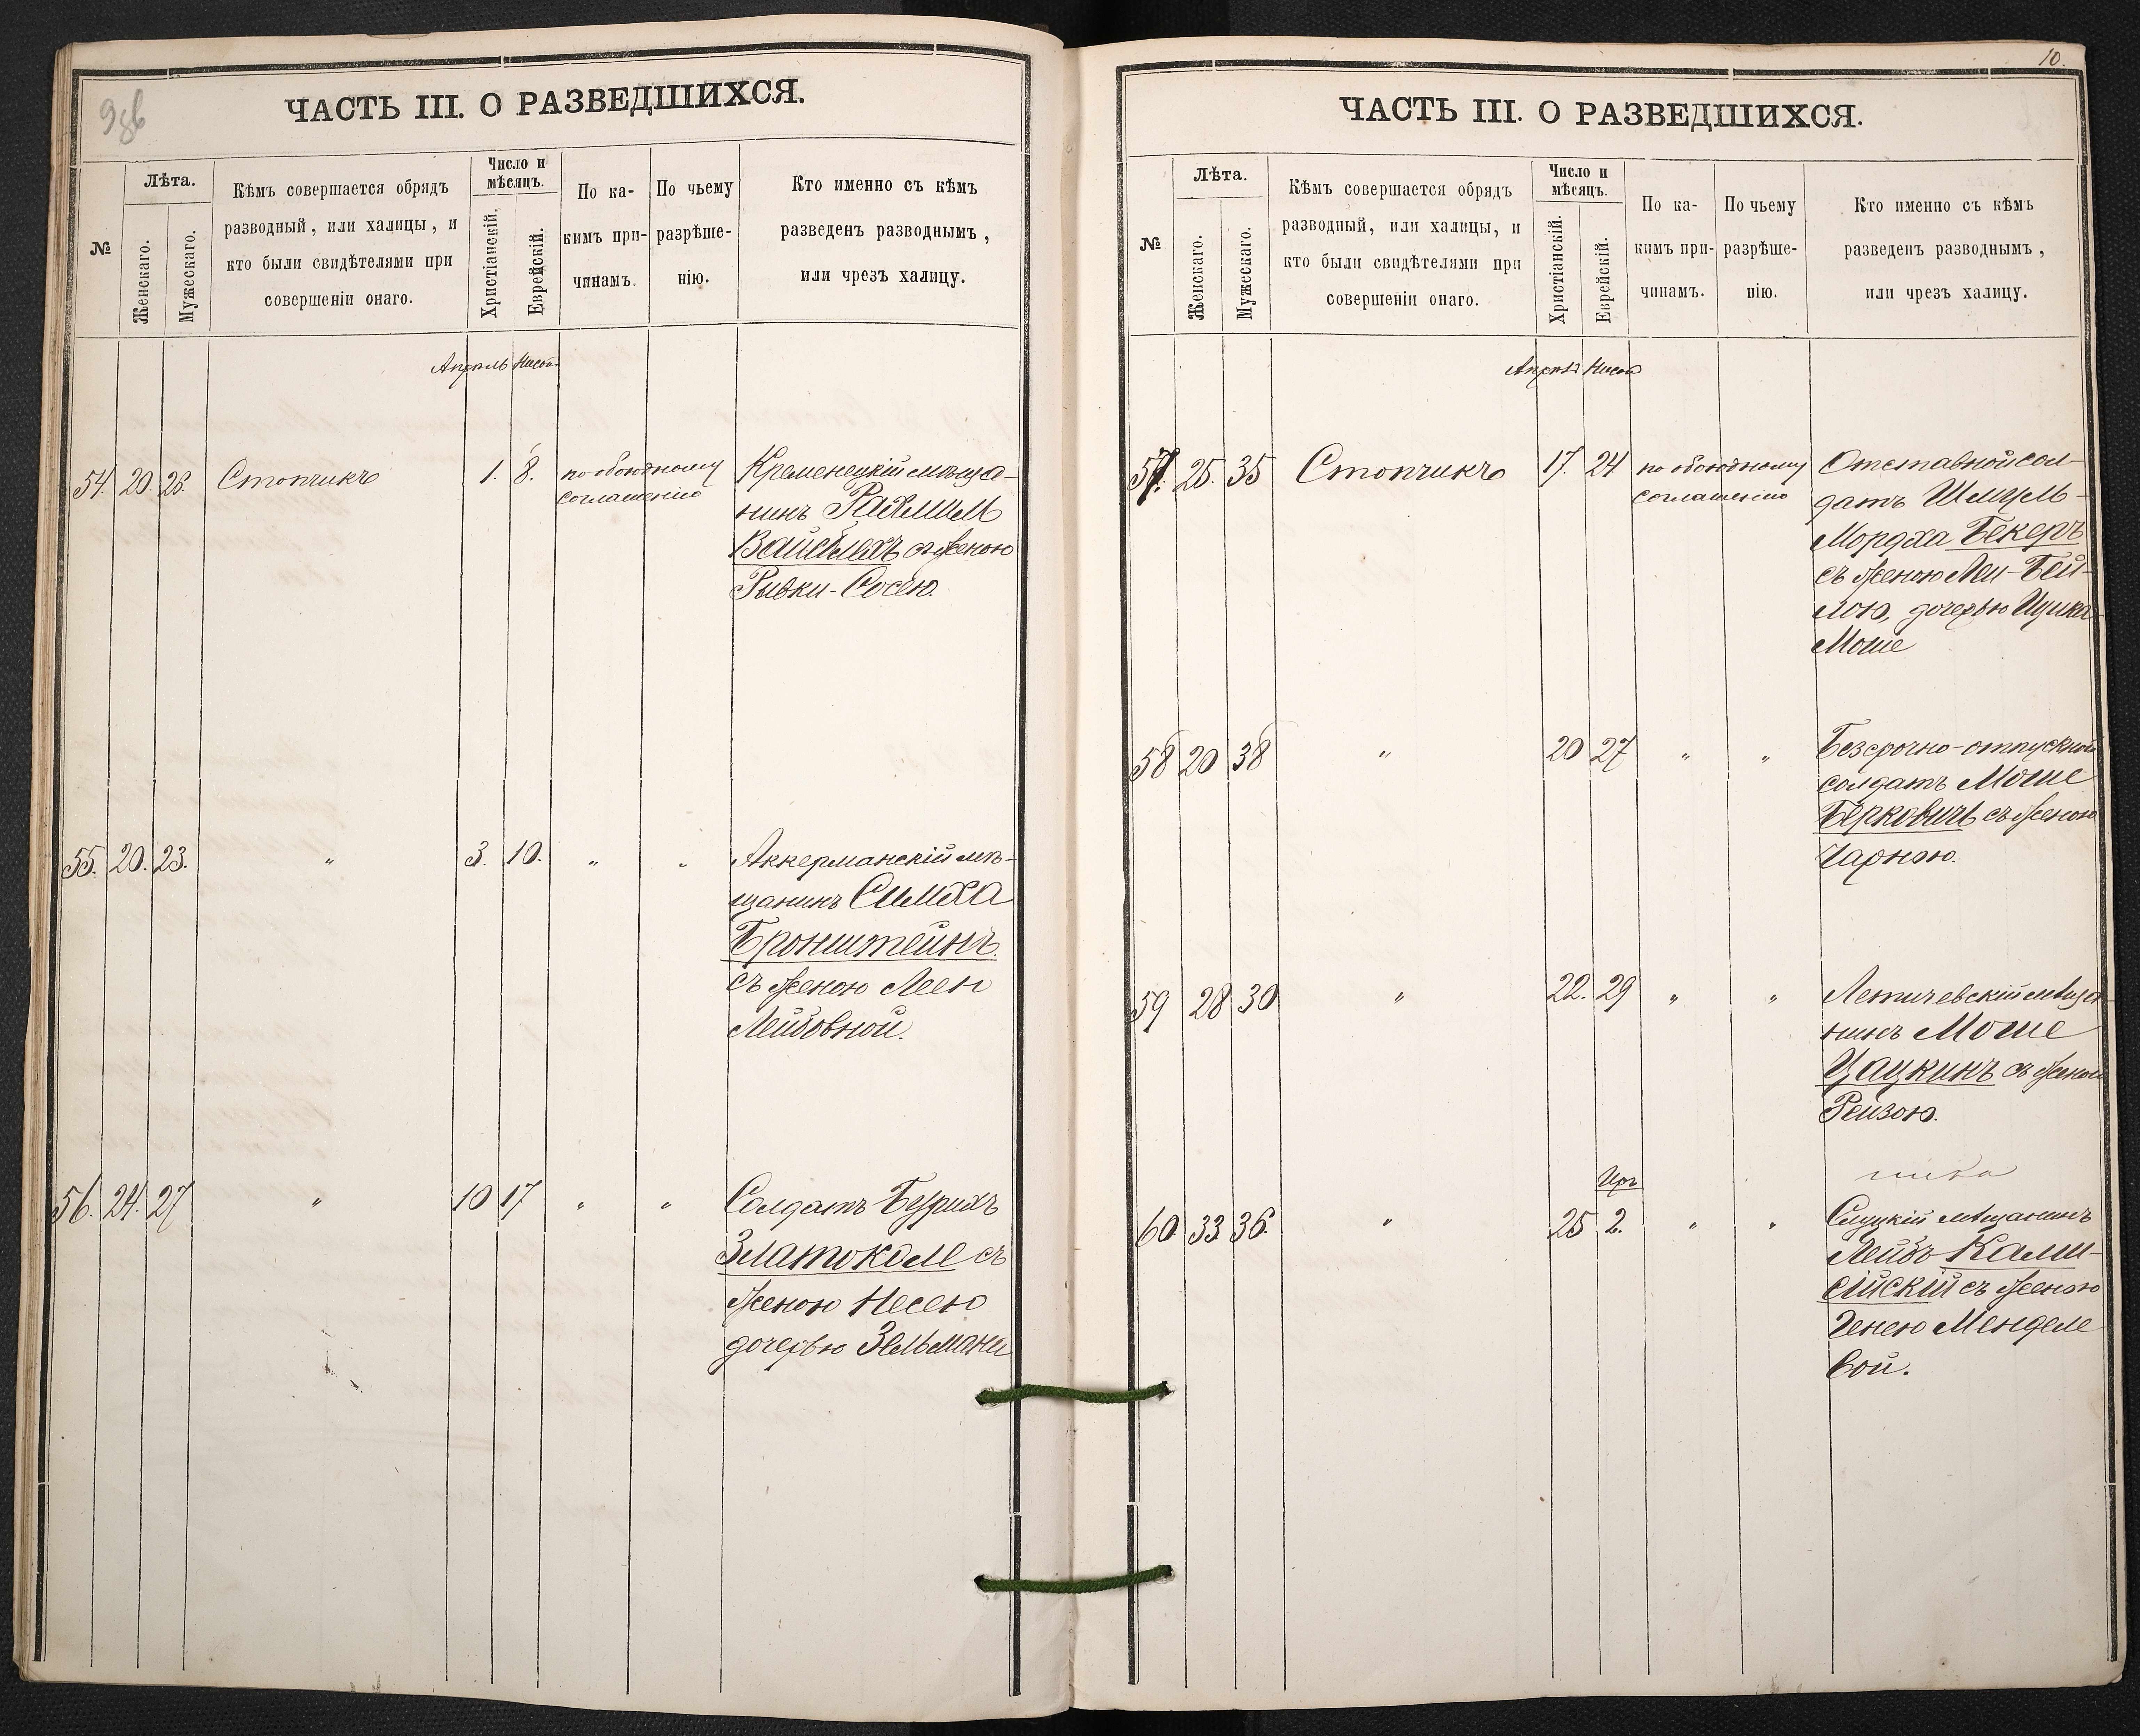 9об
ЧАСТЬ III. О РАЗВЕДШИХСЯ.
№
Лѣта.
Женскаго.
Мужескаго.
Кѣмъ совершается обрядъ
разводный, или халицы, и
кто были свидѣтелями при
совершеніи онаго.
Число и
мѣсяцъ.
Христіанскій.
Еврейскій.
По ка-
кимъ при-
чинамъ.
По чьему
разрѣше-
нію.
Кто именно съ кѣмъ
разведенъ разводнымъ,
или чрезъ халицу.
Апрѣль Нисонъ
54. 20. 23. Стопчикъ 1. 8. по обоюдному
соглашенію
Кременецкій мѣща-
нинъ Рахмиль
Вайсблехъ съ женою
Рывки-Сосею.
55. 20. 23. " 3. 10. " "
Аккерманскій мѣ-
щанинъ Симха
Бронштейнъ
съ женою Леен
Лейбовной.
56. 24. 27 " 10 17 " "
Солдатъ Берихъ
Златокоме съ
женою Несею
дочерью Зельмана
10.
ЧАСТЬ III. О РАЗВЕДШИХСЯ.
№
Лѣта.
Женскаго.
Мужескаго.
Кѣмъ совершается обрядъ
разводный, или халицы, и
кто были свидѣтелями при
совершеніи онаго.
Число и
мѣсяцъ.
Христіанскій.
Еврейскій.
По ка-
кимъ при-
чинамъ.
По чьему
разрѣше-
нію.
Кто именно съ кѣмъ
разведенъ разводнымъ,
или чрезъ халицу.
Апрѣль Нисонъ
57. 25. 35 Стопчикъ 17. 24 по обоюдному
соглашенію
Отставной сол-
датъ Шмуль-
Мордха Бекеръ
съ женою Леи-Бей-
лою, дочерью Ицика
Моше
58 20 38 " 20 27 " "
Безсрочно-отпускной
солдатъ Моше
Берковичъ съ женою
Чарною.
59 28 30 " 22. 29 " "
Летичевскій мѣща-
нинъ Моше
Цацкинъ съ женою
Рейзою.
Иръ
60. 33 36. " 25 2. " "
Слуцкій мѣщанинъ
Лейбъ Кали-
сійскій съ женою
Генею Менделе
вой.